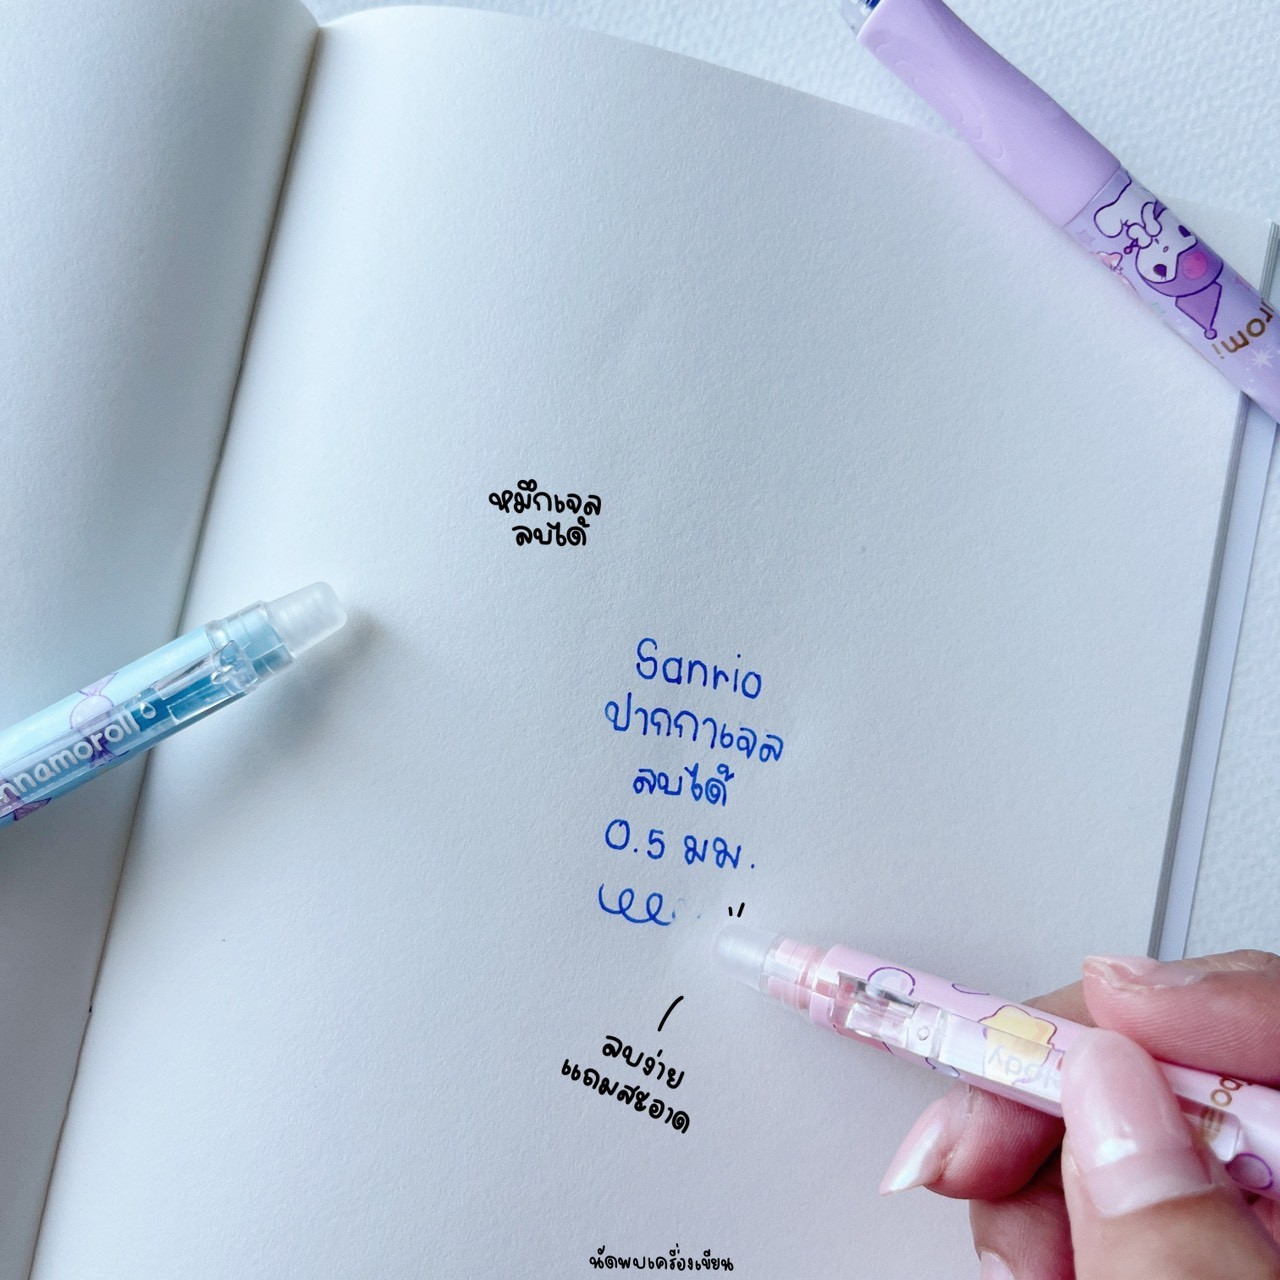 หมึกเจล
ลบได้
Sanrio
ปากกาเจล
ลบได้
0.5 มม.
ลบง่าย
แถมสะอาด
นัดพบเครื่องเขียน